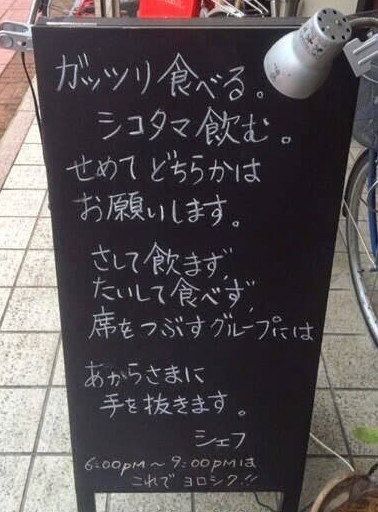 ガッツリ食べる。
シコタマ飲む。
せめてどちらかは
お願いします。
さして飲まず、
たいして食べず、
席をつぶすグループには
あからさまに
手を抜きます。
シェフ
6:00PM〜9:00PMは
これでヨロシク!!